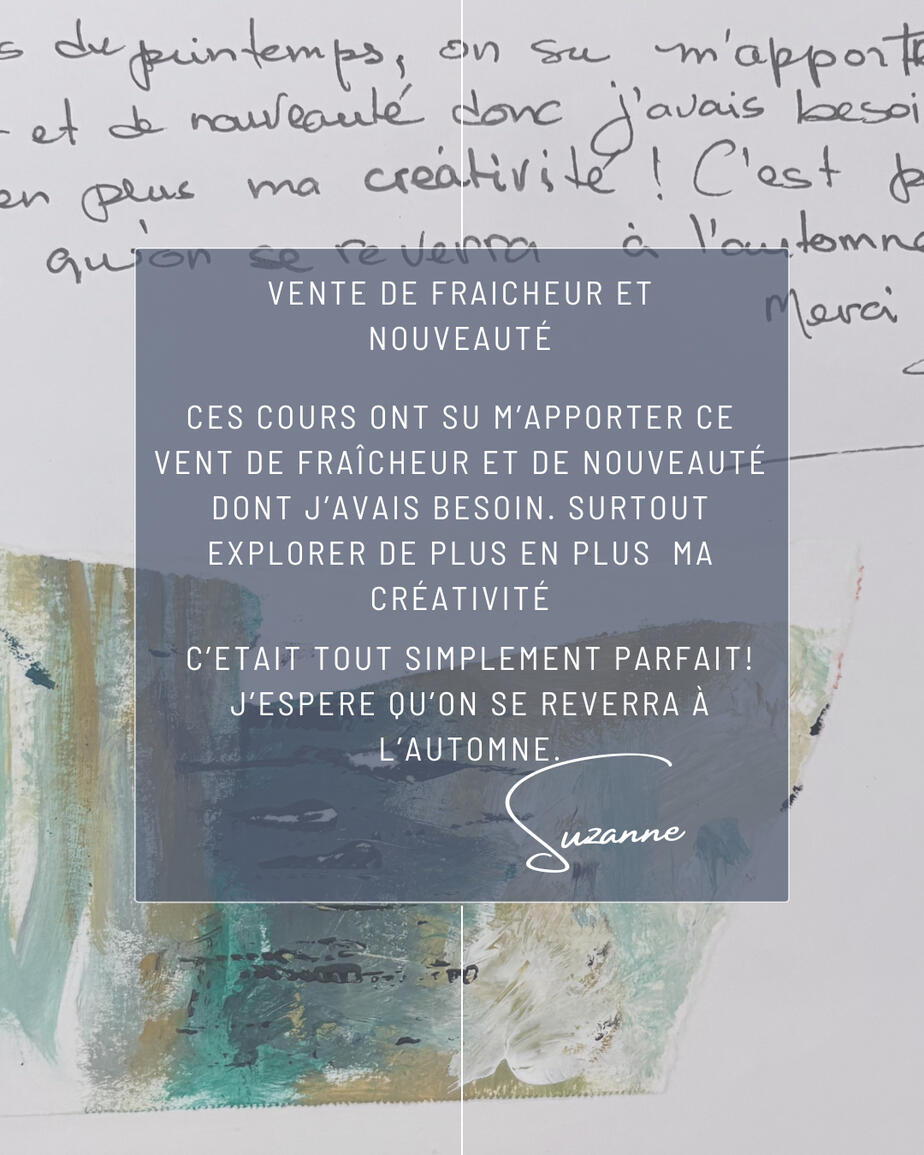 s du printemps, on su m'apporte
et de nouveauté donc j'avais besoi
en plus ma créativité ! C'est p
qu'on se reverra à l'automne
Merci
VENTE DE FRAICHEUR ET
NOUVEAUTÉ
CES COURS ONT SU M'APPORTER CE
VENT DE FRAÎCHEUR ET DE NOUVEAUTÉ
DONT J'AVAIS BESOIN. SURTOUT
EXPLORER DE PLUS EN PLUS MA
CRÉATIVITÉ
C'ETAIT TOUT SIMPLEMENT PARFAIT!
J'ESPERE QU'ON SE REVERRA À
L'AUTOMNE.
Suzanne